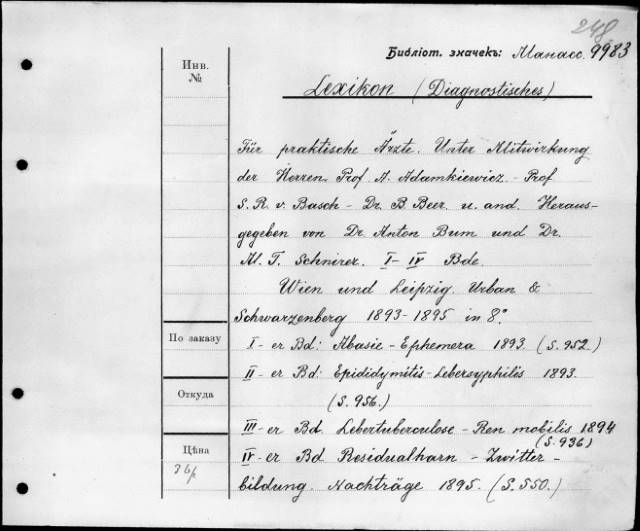 248
Библіот. значекъ: Манасс. 9983
Инв.
№
Lexikon (Diagnostisches)
Für praktische Ärzte. Unter Mitwirkung
der Herren. Prof. A. Adamkiewicz. - Prof.
S. R. v. Basch - Dr. B. Beer. u. and. Heraus-
gegeben von Dr. Anton Bum und Dr.
M. T. Schnirer. I - IV Bde.
Wien und Leipzig. Urban &
Schwarzenberg 1893-1895 in 8°
По заказу
I - er Bd: Abasie - Ephemera 1893. (S. 952)
II - er Bd: Epididymitis - Lebersyphilis 1893.
Откуда
(S. 956.)
III - er Bd. Lebertuberculose - Ren mobilis 1894
(S. 936)
Цѣна
IV - er Bd. Residualharn - Zwitter-
36р
bildung. Nachträge 1895. (S. 550.)